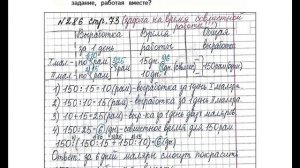 задание, работая вместе?
№286 стр.93 (задача на время совместной работы!)
Выработка за 1 день
Время работы
Общая выработка
I мал.
II мал.
1) 150:15=10(рам) - выработка за 1 день I маляра.
2) 150:10=15(рам) - выработка за 1 день II маляра.
3) 10+15=25(рам) - выр-ка за 1 день двух маляров.
4) 150:25=6(дн) - совместное время для 150 рам
150:(150:15+150:10)=6(дн)
Ответ: за 6 дней маляры смогут покрасить